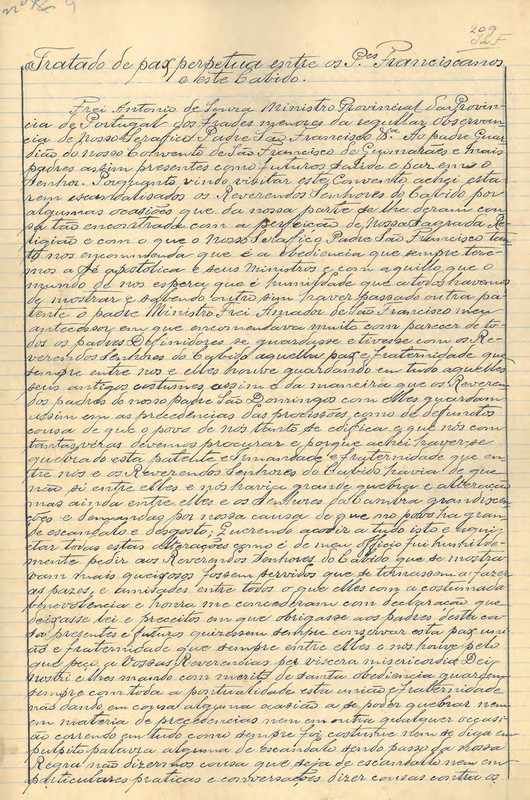 nº 9
209
Tratado de pax perpetua entre os P.es Franciscanos
e este Cabido.
Frei Antonio de Soura Ministro Provincial da Provin-
cia de Portugal dos Frades menores da regullar observan-
cia de Nosso Serafico Padre São Francisco &a. Ao padre Guar-
dião do nosso Convento de São Francisco de Guimarães e mais
padres assim presentes como futuros saude e paz em o
Senhor. Porquanto vindo visitar este Convento achei esta-
rem escandalisados os Reverendos Senhores do Cabido por
algumas ocasiões que da nossa parte se lhe deram cou-
sa tão encontrada com a perfeição de Nossa Sagrada Re-
ligião e com o que o Nosso Serafico Padre São Francisco tan-
to nos encommenda que é a obediencia que sempre tere-
mos a Sé apostolica e seus Ministros e com aquillo que o
mundo de nos espera que é humildade que a todos havemos
de mostrar e sabendo outro sim haver passado outra pa-
tente o padre Ministro Frei Amador de São Francisco meu
antecessor em que encomendava muito com parecer de to-
dos os padres Definidores se guardasse e tivesse com os Re-
verendos Senhores do Cabido aquella pax e fraternidade que
sempre entre nos e elles houve guardando em tudo aquelles
seus antigos costumes assim e da maneira que os Reveren-
dos padres do nosso padre São Domingos com elles guardam
assim em as precedencias das procissões como de defuntos
cousa de que o povo de nós tanto se edifica e que nós com
tantas veras devemos procurar e porque achei haver-se
quebrado esta patente e irmandade e fraternidade que en-
tre nós e os Reverendos Senhores do Cabido havia de que
não si entre elles e nós havia grande quebra e alteração
mas ainda entre elles e os Senhores da Camara grandiscen-
ções e demandas por nossa causa de que no povo ha gran-
de escandalo e desgosto; Querendo acudir a tudo isto e aquie-
ctar todas estas alterações como é de meu officio fui humilde-
mente pedir aos Reverendos Senhores do Cabido que se mostra-
vam mais queixosos fossem servidos que se tornassem a fazer
as pazes e amisades entre todos o que elles com a costumada
benevolencia e honra me concederam com declaração que
deixasse lei e preceitos em que obrigasse aos padres desta ca-
sa presentes e futuros quizessem sempre conservar esta pax uni-
ão e fraternidade que sempre entre elles e nós houve pelo
que peço a Vossas Reverendias per viscera misericordia Dei
nostri e lhes mando com merito de santa obediencia guardem
sempre com toda a pontualidade esta união e fraternidade
não dando em cousa alguma ocasião a se poder quebrar nem
em materia de precedencias nem em outra qualquer occasi-
ão correndo em tudo como sempre foi costume nem se diga em
pulpito palavra alguma de escandalo sendo passo da nossa
Regra não dizermos cousa que seja de escandalo nem em
particulares praticas e conversações dizer cousas contra os